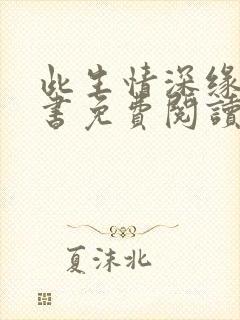 此生情深緣
書免費閱讀
夏沫北